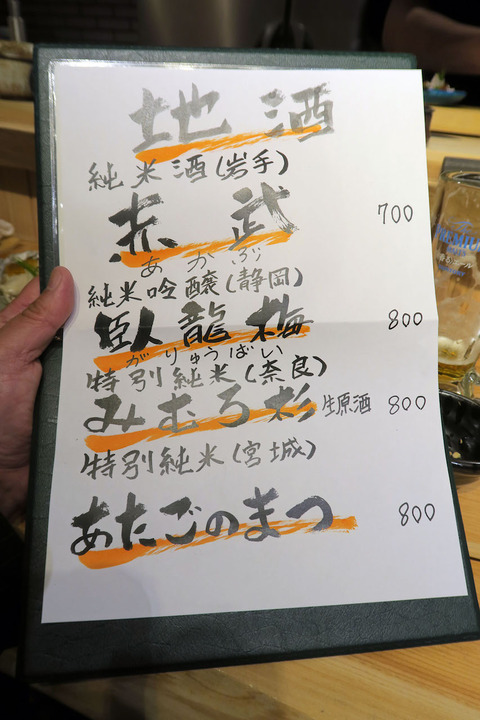 地酒
純米酒(岩手)
赤武 700
あかぶ
純米吟醸(静岡)
臥龍梅 800
がりゅうばい
特別純米(奈良)
みむろ杉 生原酒 800
特別純米(宮城)
あたごのまつ 800